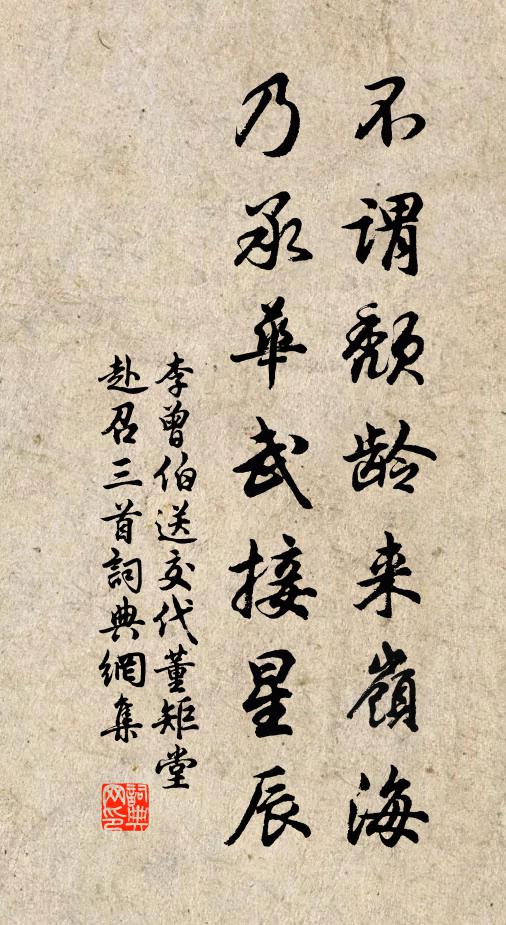 不谓颓龄来嶺海
乃承华武接星辰
李曾伯送交代董矩堂
赴召三首詞典網集
詞典
网印